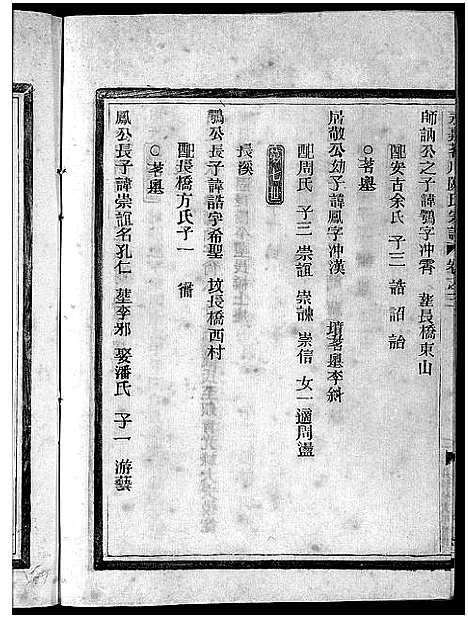 師訓公之子諱鶚字冲霄 塟長橋東山
配安古余氏 子三 誥 詔 詒
○茗嶴
居敬公幼子諱鳳字冲漢 墳茗嶴李斜
配周氏 子三 崇誼 崇諫 崇信 女一適周盪
長溪
鶚公長子諱誥字希聖 坟長橋西村
配長橋方氏子一
○茗嶴
鳳公長子諱崇誼名孔仁 塟李邪 娶潘氏 子一 游藝